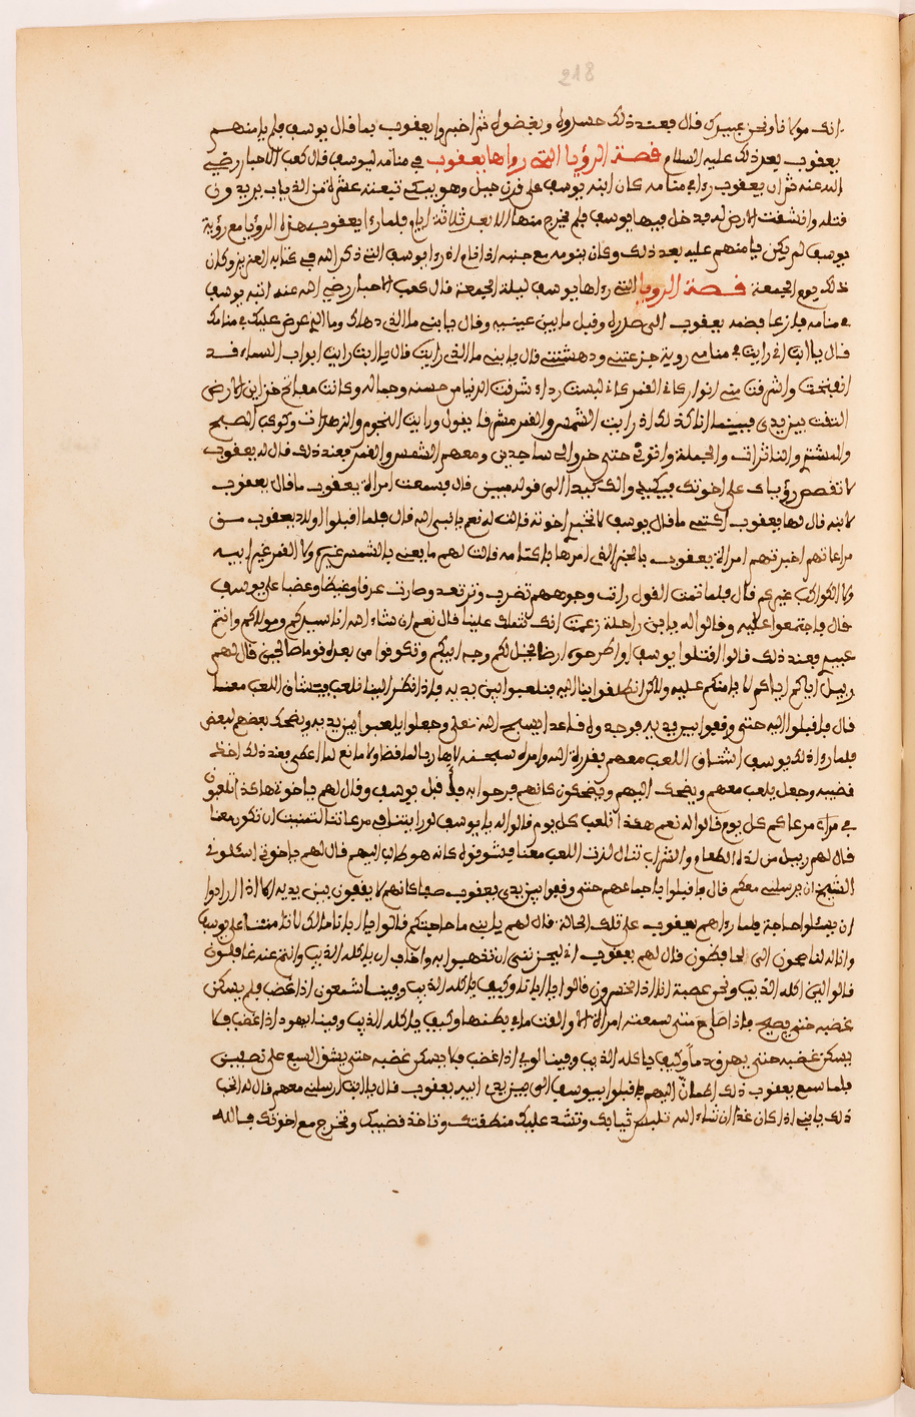 218
انك مولانا ونحن عبيدك قال فعند ذلك حسدوه وبغضوه ثم اخبروا يعقوب بما قال يوسف فلم يامنهم
يعقوب بعد ذلك عليه السلام قصة الرؤيا التى رواها يعقوب في منامه ليوسف قال كعب الاحبار رضي
الله عنه ثم ان يعقوب رءا في منامه كان ابنه يوسف على قرن جبل وهو يبكى تبعته عشرة من الذياب يريدون
قتله وانشقت الارض له فدخل فيها يوسف فلم يخرج منها الا بعد ثلاثة ايام فلما رءا يعقوب هذه الرؤيا مع رؤية
يوسف لم يكن يامنهم عليه بعد ذلك وكان ينومه مع جنبه اذا قام اذ رءا يوسف التى ذكر الله في كتابه العزيز وكان
ذلك يوم الجمعة قصة الرويا التى رءاها يوسف ليلة الجمعة قال كعب الاحبار رضي الله عنه انتبه يوسف
من منامه فازعا فضمه يعقوب الى صدره وقبل ما بين عينيه وقال يا بنى ما الذى دهاك وما الذى عرض عليك في منامك
قال يا ابت انى رايت في منامى روية جزعتنى ودهشتنى قال يا بنى ما الذى رايت قال يا ابت رايت ابواب السماء قد
انفتحت واشرقت منها انوار كان القمر كانى لبست رداء شرقت الدنيا من حسنه وجماله وكانت مفاتح خزاين الارض
القت بين يدى فبينما انا كذلك اذ رايت الشمس والقمر مشرقا يقول ورايت النجوم والزهرات وكوكب الصبح
والمشتري والناثرات والجملة واتونى حتى خروا لى ساجدين ومعهم الشمس والقمر فعند ذلك قال له يعقوب
لا تقصص رؤياك على اخوتك فيكيدوا لك كيدا الى قوله مبين قال فسمعت امراة يعقوب ما قال يعقوب
لابنه قال لها يعقوب اكتمى ما قال يوسف لا تخبر اخوته قالت له نعم يا نبى الله قال فلما اقبلوا اولاد يعقوب من
مراعاتهم اخبرتهم امراة يعقوب بالخبر الذى امرها باكتتامه قالت لهم ما يعنى بالشمس غيرى ولا القمر غير ابيه
ولا الكواكب غيركم قال فلما تمت القول رات وجوههم تضرب وترتعد وصارت عرقا وغيظا وغضبا على يوسف
قال فاجتمعوا عليه وقالوا له يا بن راحلة زعمت انك تتملك علينا قال نعم ان شاء الله انا سيدكم ومولاكم وانتم
عبيدى فعند ذلك قالوا اقتلوا يوسف او اطرحوه ارضا يخل لكم وجه ابيكم وتكونوا من بعده قوما صالحين قال لهم
ربيل اياكم اياكم لا يامنكم عليه ولاكن انطلقوا بنا اليه فنلعبوا بين يديه فاذا نظر الينا نلعب فيشتاق اللعب معنا
قال فاقبلوا اليه حتى وقفوا بين يديه فوجدوه قاعدا يسبح الله تعلى وجعلوا يلعبوا بين يديه ويضحك بعضهم لبعض
فلما رءا ذلك يوسف اشتاق اللعب معهم بقدرة الله وامره سبحنه لا هاربا لما قضا ولا مانع لما اعطى بعد ذلك اخذ
قضيبه وجعل يلعب معهم ويضحك اليهم ويضحكون كانهم فرحوا به قبل يوسف وقال لهم يا خوتى هاكذا تلعبون
في مراعاكم كل يوم قالوا له نعم هكذا نلعب كل يوم قالوا له يا يوسف لو رايتنا في مرعاتنا لتمنيت ان تكون معنا
قال لهم ربيل من لذة الطعام والشراب تنال لذة اللعب معنا فيشوقوه كانه هو طالب اليهم قال لهم يا خوتى اسئلوا في
الشيخ ان يرسلنى معكم قال فاقبلوا باجماعهم حتى وقفوا بين يدي يعقوب صفا كانهم لا يقفون بين يديه الا اذا ارادوا
ان يسئلوا حاجة فلما رءاهم يعقوب على تلك الحالة قال لهم يا بنى ما حاجتكم قالوا يا ابانا مالك لا تامنا على يوسف
وانا له لناصحون الى لحافظون قال لهم يعقوب انى ليحزننى ان تذهبوا به واخاف ان ياكله الذيب وانتم عنه غافلون
قالوا لين اكله الذيب ونحن عصبة انا اذا لخسرون قالوا يا ابانا وكيف ياكله الذيب وفينا شمعون اذا غضب فلم يسكن
غضبه حتى يصيح فاذا صاح متى سمعته امراة الا والقت ما في بطنها وكيف ياكله الذيب وفينا يهودا اذا غضب فلا
يسكن غضبه حتى يهرق دما وكيف ياكله الذيب وفينا لوى اذا غضب فلا يسكن غضبه حتى يشق السبع على نصفين
فلما سمع يعقوب ذلك اطمان اليهم فاقبلوا بيوسف الى بين يدي ابيه يعقوب قال يا ابت ارسلنى معهم قال له اتحب
ذلك يا بنى اذا كان غدا ان شاء الله تلبس ثيابك وتشد عليك منطقتك وتاخذ قضيبك وتخرج مع اخوتك فبالله